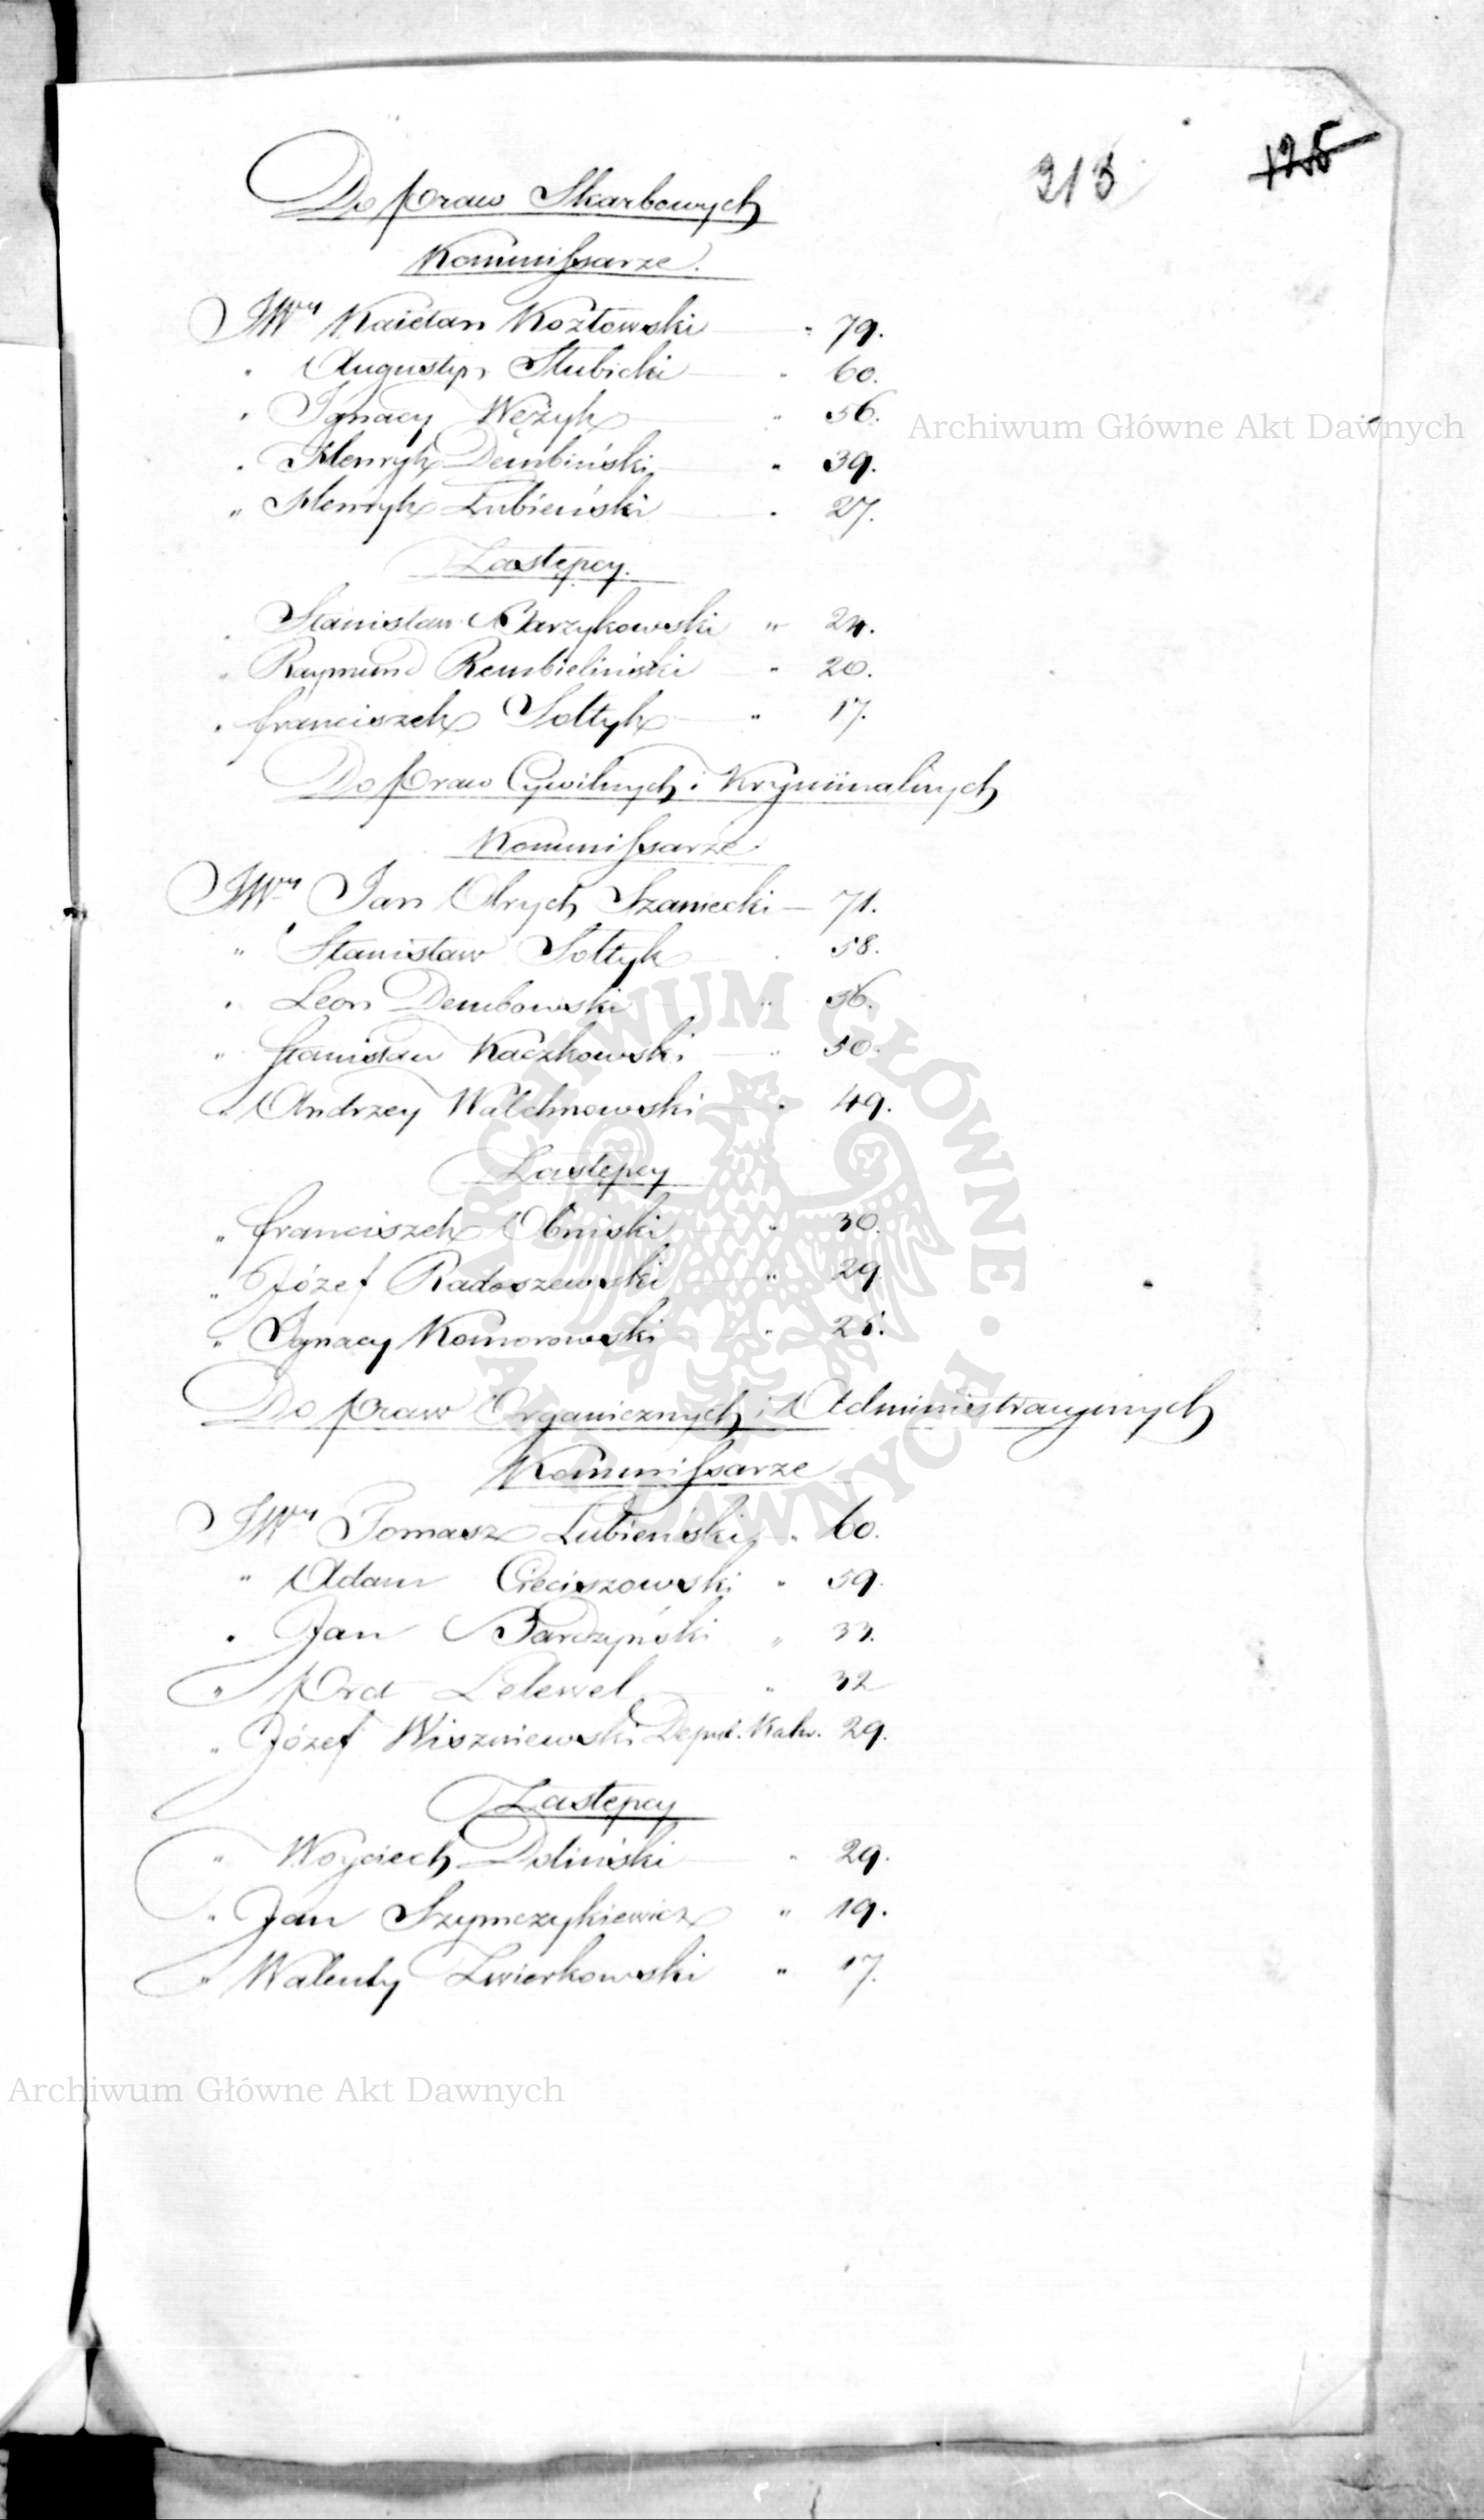 213 125
Do Praw Skarbowych
Kommissarze.
JWny Kaietan Kozłowski „ 79.
„ Augustyn Słubicki „ 60.
„ Ignacy Wężyk „ 56.
„ Henryk Dembiński „ 39.
„ Henryk Łubieński „ 27.
Zastępcy.
„ Stanisław Barzykowski „ 24.
„ Raymund Rembieliński „ 20.
„ Franciszek Sołtyk „ 17.
Do Praw Cywilnych i Kryminalnych
Kommissarze.
JWny Jan Olrych Szaniecki — 71.
„ Stanisław Sołtyk „ 58.
„ Leon Dembowski „ 56.
„ Stanisław Kaczkowski „ 50.
„ Andrzey Walchnowski „ 49.
Zastępcy
„ Franciszek Obniski „ 30.
„ Józef Radoszewski „ 29
„ Ignacy Komorowski „ 25.
Do Praw Organicznych i Administracyinych
Kommissarze
JWny Tomasz Łubieński „ 60.
„ Adam Cieciszowski „ 59.
„ Jan Bardzyński „ 33.
„ Prot Lelewel „ 32
„ Józef Wiszniewski Deput. Kalw. 29.
Zastępcy
„ Woyciech Doliński „ 29.
„ Jan Szymczykiewicz „ 19.
„ Walenty Zwierkowski „ 17.
Archiwum Główne Akt Dawnych
ARCHIWUM GŁÓWNE AKT DAWNYCH
Archiwum Główne Akt Dawnych